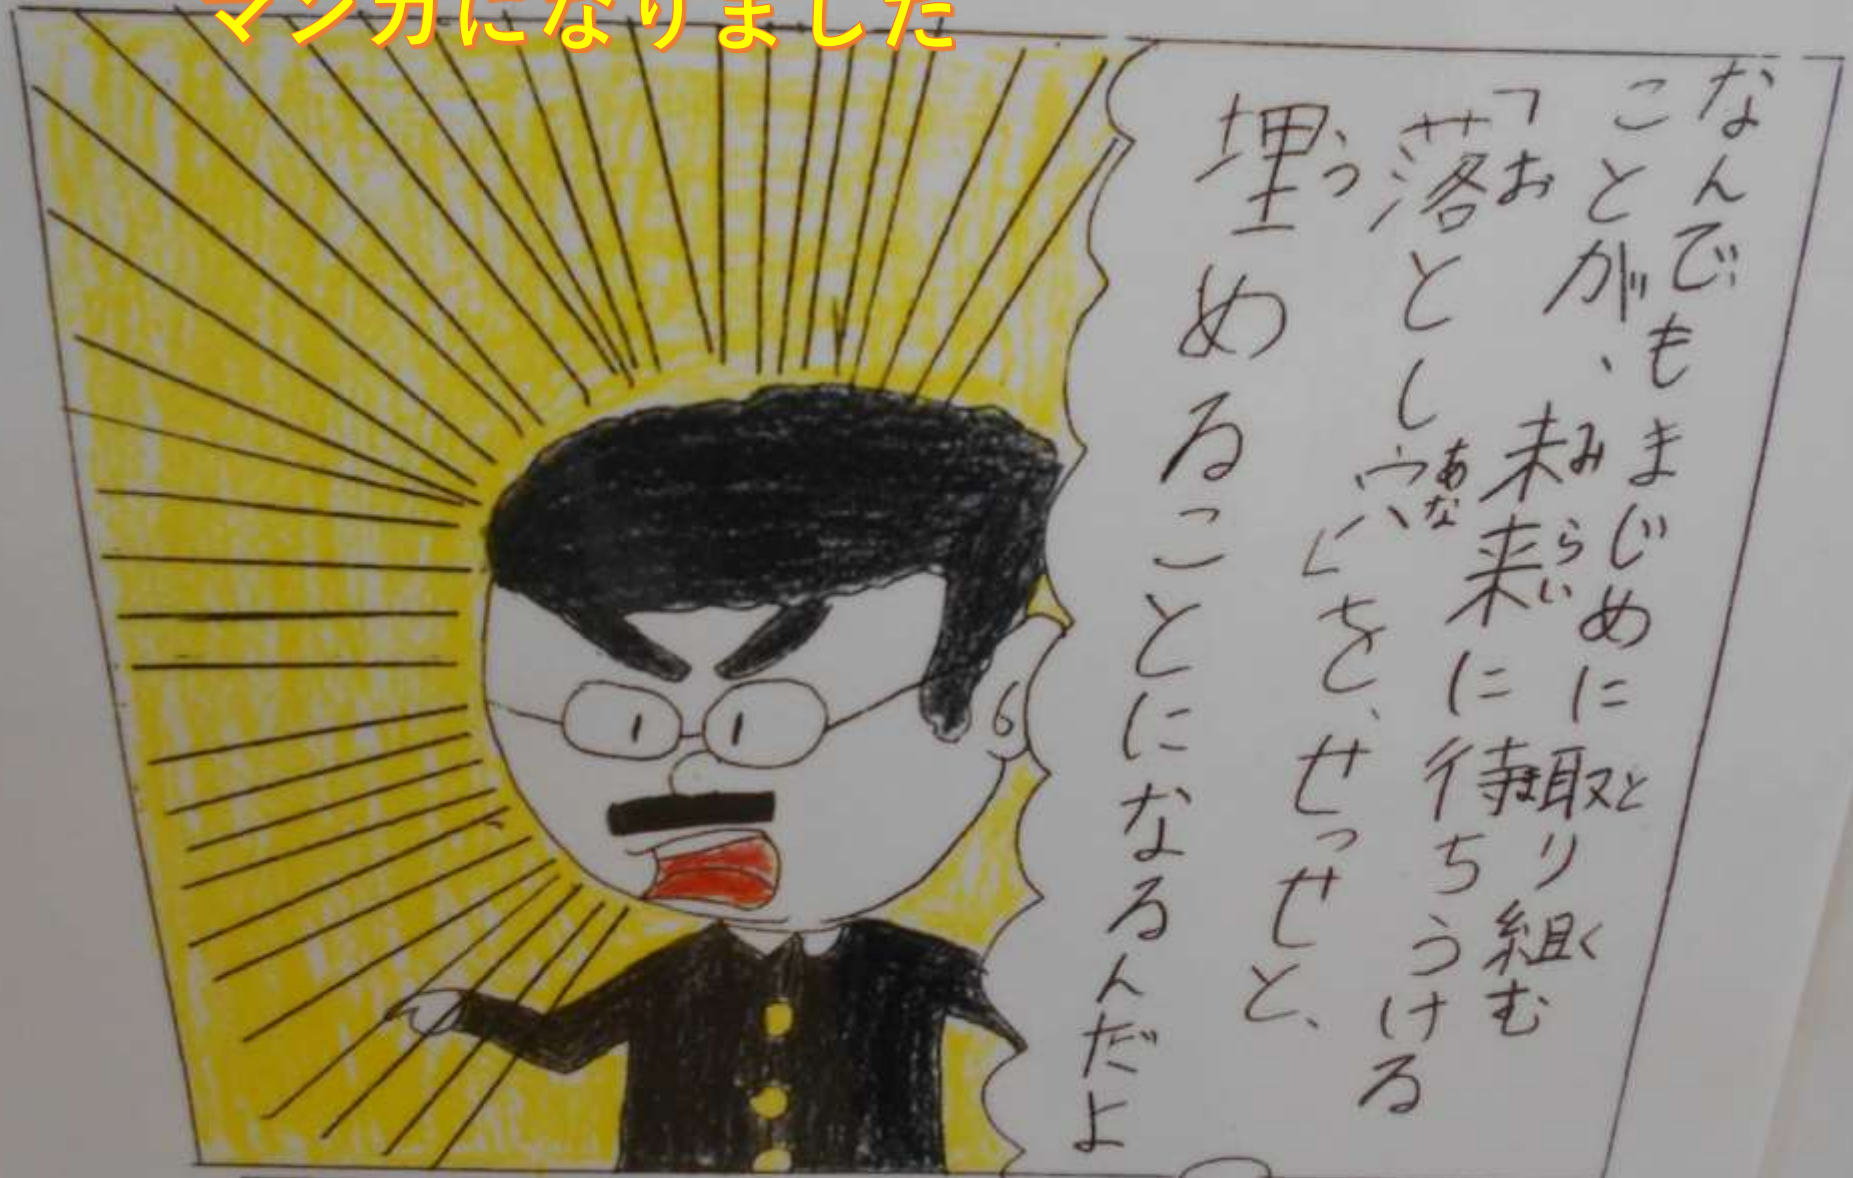 マンガになりました
なんでもまじめに取り組む
ことが、未来に待ちうける
「落とし穴」を、せっせと、
埋めることになるんだよ
と
く
みらい
ま
お
あな
う